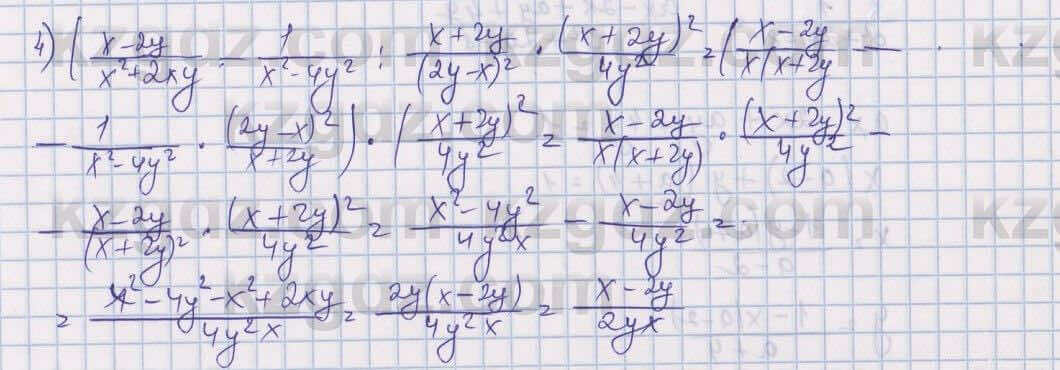 4) ( (x-2y)/(x²+2xy) - 1/(x²-4y²) : (x+2y)/(2y-x)² · (x+2y)²/4y² = ( (x-2y)/(x(x+2y) -
- 1/(x²-4y²) · (2y-x)²/(x+2y) ) · ( (x+2y)²/4y² = (x-2y)/(x(x+2y)) · (x+2y)²/4y² -
- (x-2y)/(x+2y)² · (x+2y)²/4y² = (x²-4y²)/4y²x - (x-2y)/4y² =
= (x²-4y²-x²+2xy)/4y²x = 2y(x-2y)/4y²x = (x-2y)/2yx